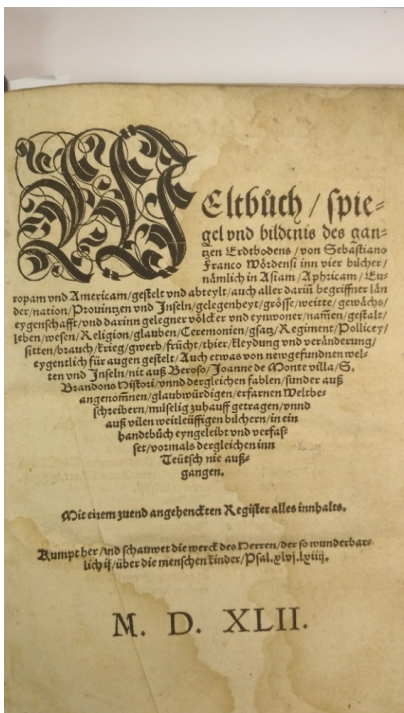 WEltbůch / spie=
gel vnd bildtnis des gan=
tzen Erdtbodens / von Sebastiano
Franco Wördensi inn vier bücher /
nämlich in Asiam / Aphricam / Eu=
ropam vnd Americam / gestelt vnd abteylt / auch aller dariñ begriffner län
der / nation / Prouintzen vnd Inseln / gelegenheyt / grösse / weitte / gewächs /
eygenschafft / vnd darinn gelegner völcker vnd eynwoner / nam̃en / gestalt /
leben / wesen / Religion / glauben / Ceremonien / gsatz / Regiment / Pollicey /
sitten / brauch / krieg / gwerb / frücht / thier / kleydung vnd veränderung /
eygentlich für augen gestelt / Auch etwas von newgefundnen wel=
ten vnd Inseln / nit auß Beroso / Joanne de Monte villa / S.
Brandons Histori / vnnd dergleichen fablen / sunder auß
angenom̃nen / glaubwürdigen / erfarnen Weltbe=
schreibern / müselig zuhauff getragen / vnnd
auß vilen weitleüffigen büchern / in ein
handtbůch eyngeleibt vnd verfas=
set / vormals dergleichen inn
Teütsch nie auß=
gangen.
Mit einem zuend angehenckten Register alles innhalts.
Kumpt her / vnd schauwet die werck des Herren / der so wunderbar=
lich ist / über die menschen kinder / Psal. xlvj. lxiiij.
M. D. XLII.